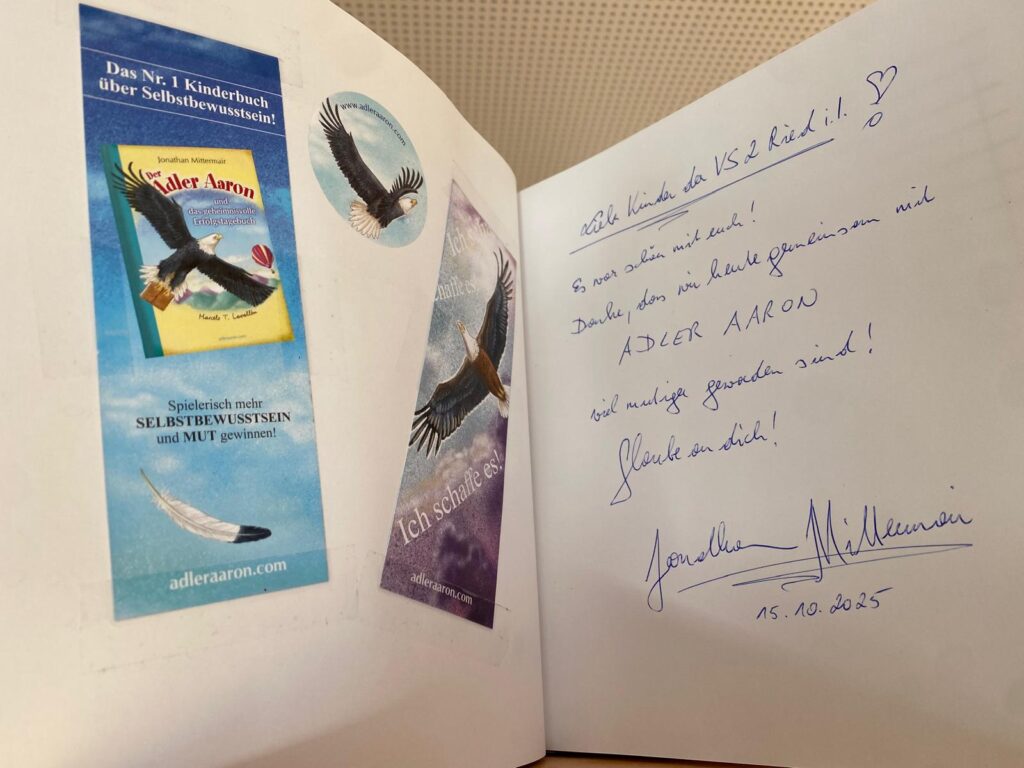 Das Nr. 1 Kinderbuch
über Selbstbewusstsein!
Jonathan Mittermair
Der
Adler Aaron
und
das geheimnisvolle
Erfolgstagebuch
adleraaron.com
Spielerisch mehr
SELBSTBEWUSSTSEIN
und MUT gewinnen!
adleraaron.com
www.adleraaron.com
Ich
schaffe es!
Ich schaffe es!
adleraaron.com
Liebe Kinder der VS 2 Ried i.I.!
Es war schön mit euch!
Danke, dass wir heute gemeinsam mit
ADLER AARON
viel mutiger geworden sind!
Glaube an dich!
Jonathan Mittermair
15.10.2025